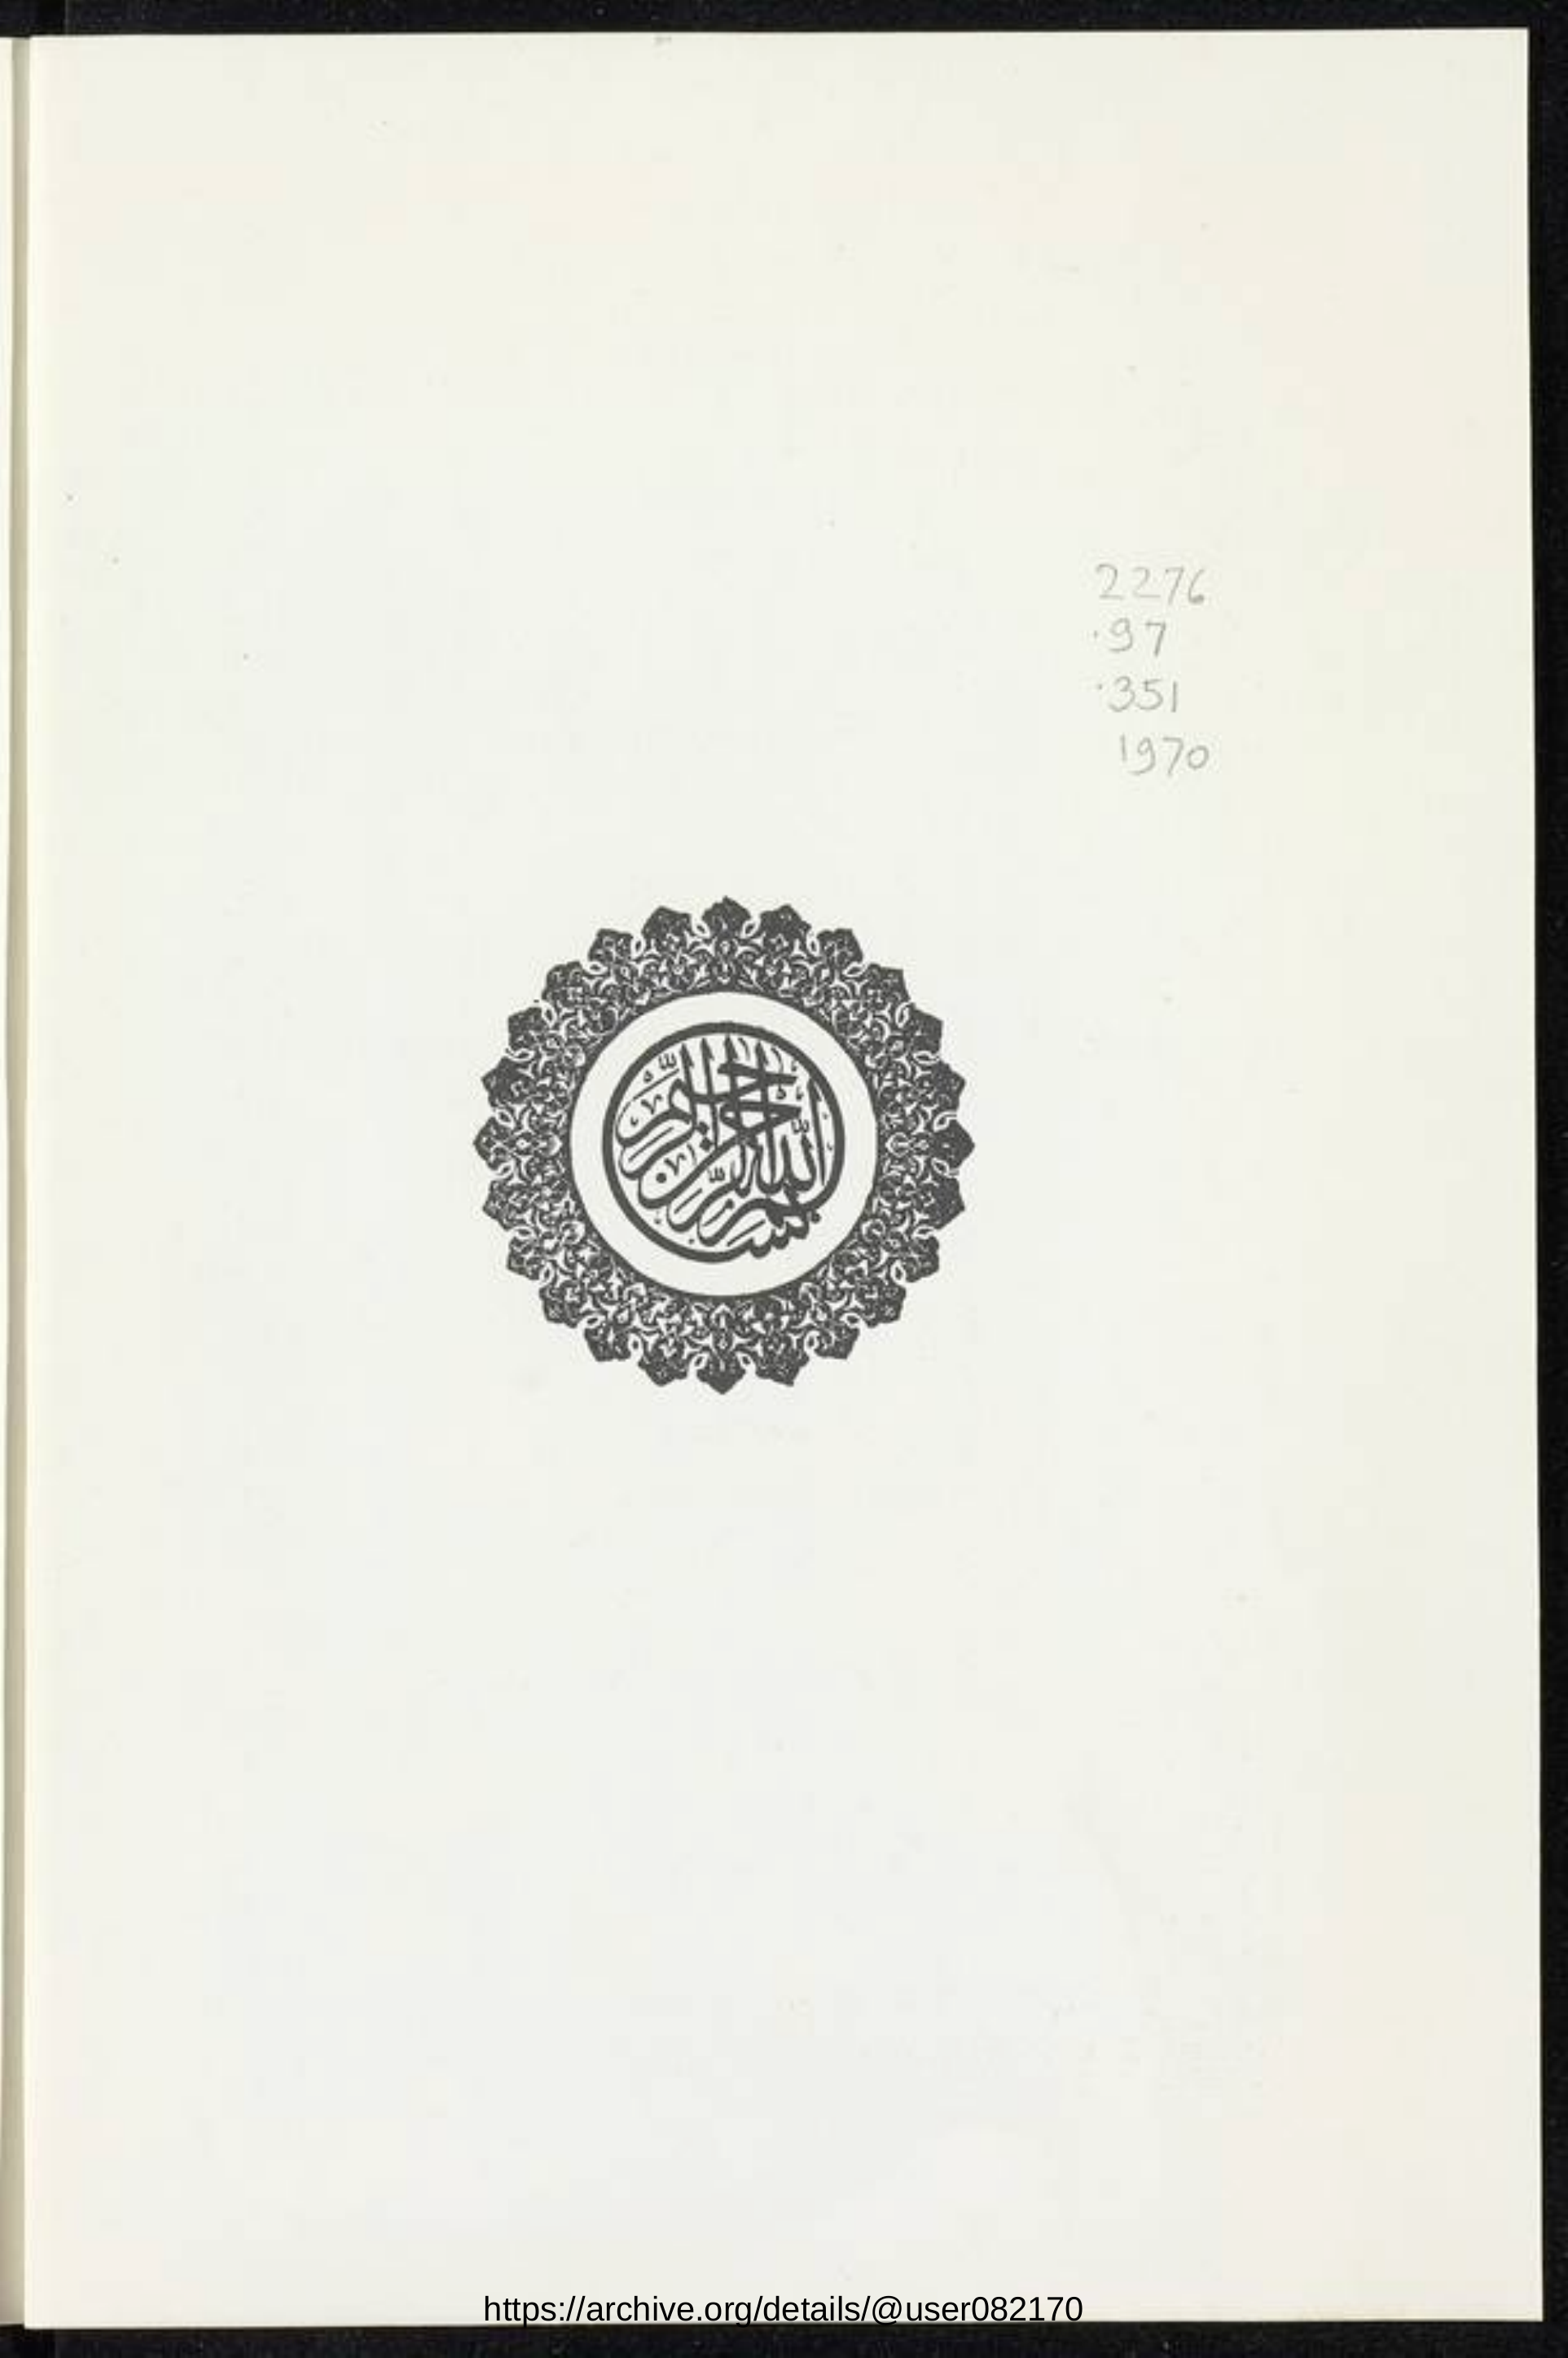 2276
.97
.351
1970
بسم الله الرحمن الرحيم
https://archive.org/details/@user082170